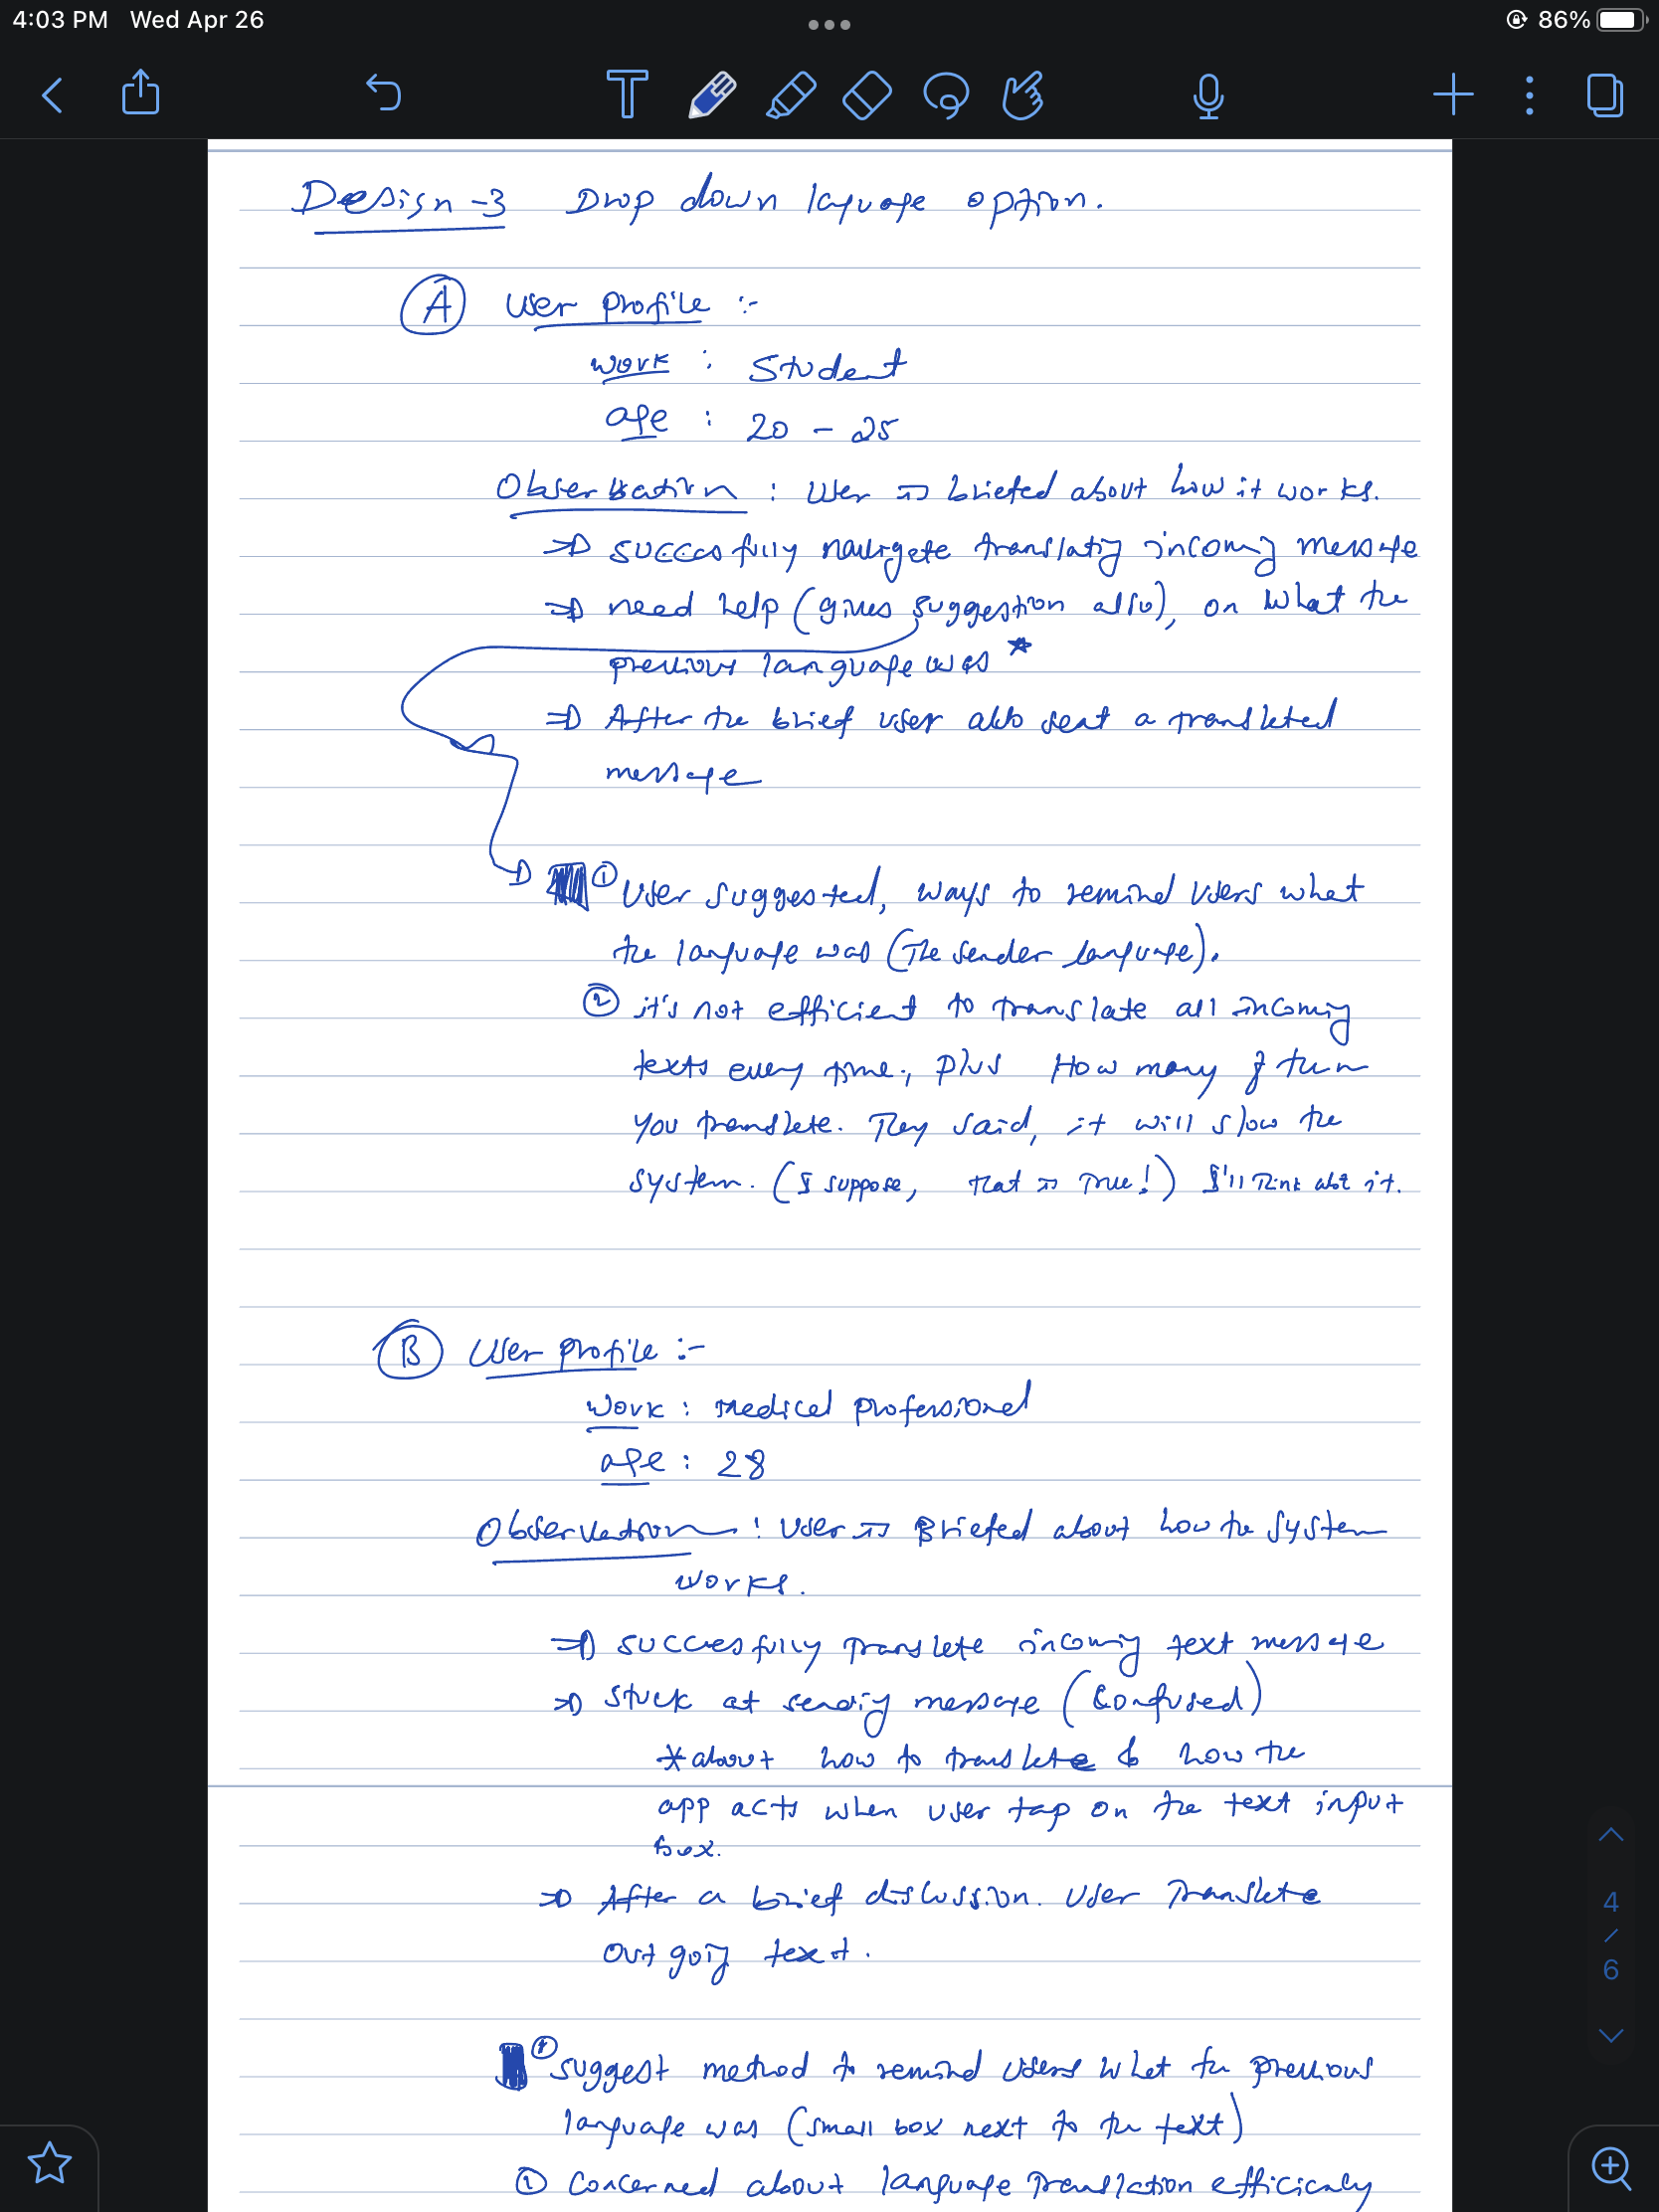 4:03 PM Wed Apr 26
86%
Design-3 Drop down laguage option.
A User Profile :-
Work : Student
age : 20 - 25
Observation : User is briefed about how it works.
⇒ succesfully navigate translatig incoming message
⇒ need help (gives suggestion also), on what the
previous language was *
⇒ After the brief user also sent a translated
message
① User suggested, ways to remind users what
the language was (The sender language).
② it's not efficient to translate all incoming
texts every time, plus How many of them
you translate. They said, it will slow the
system. (I suppose, that is True!) I'll Think abt it.
B User Profile :-
Work : Medical professional
age : 28
Observation : User is Briefed about how the system
works.
⇒ succesfully translate incoming text message
⇒ stuck at sendig message (Confused)
* about how to translate & how the
app acts when user tap on the text input
box.
⇒ After a brief discussion. User Translate
out goig text.
① suggest method to remind users what the previous
language was (small box next to the text)
② Concerned about language Translation efficiency
4
/
6